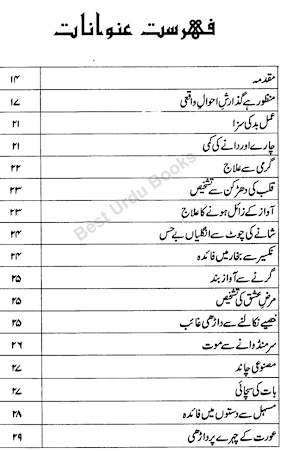 فہرست عنوانات
مقدمہ ۱۴
منظور ہے گذارشِ احوالِ واقعی ۱۷
عمل بد کی سزا ۲۱
چارے اور دانے کی کمی ۲۱
گرمی سے علاج ۲۲
قلب کی دھڑکن سے تشخیص ۲۳
آواز کے زائل ہونے کا علاج ۲۳
شانے کی چوٹ سے انگلیاں بے حس ۲۴
نکسیر سے بخار میں فائدہ ۲۴
گرنے سے آواز بند ۲۵
مرضِ عشق کی تشخیص ۲۵
خصیے نکالنے سے داڑھی غائب ۲۵
سر منڈوانے سے موت ۲۶
مصنوعی چاند ۲۷
بات کی سچائی ۲۷
مسہل سے دستوں میں فائدہ ۲۸
عورت کے چہرے پر داڑھی ۲۹
Best Urdu Books